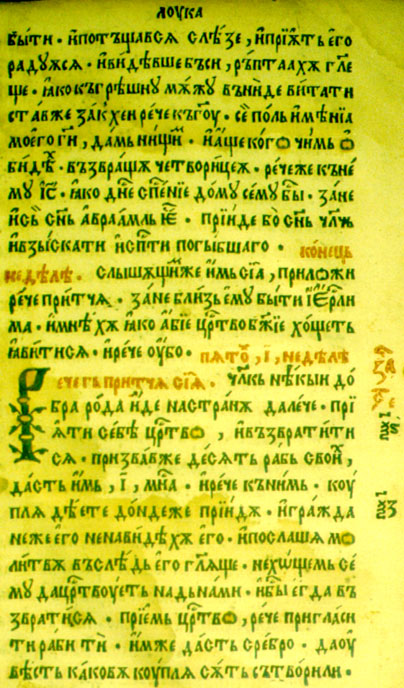 ЛОУКА
бы́ти · и҆потъщавсѧ слѣ́зе , и҆прїѧ́тъ є҆го
радуѧсѧ · и҆ви́дѣвше въси , ръптаахѫ гл҃ѧ
ще · ꙗ҆ко къ грѣшну мѫжу въни́де вита́ти
ста́вже за́кхеи рече къ гоу · се̏ полъ и҆мѣ́нїа
моего ги , да́мь ни́щи́и · и҆а҆ще кого̀ чи́мь о
би́дѣх · въ́звращѫ четвори́цеѫ · рече́же къ не́
му і҆с҃ · ꙗ҆ко дне сп҃е́нїе до́му се́му бы́ · за́не
и҆съ сн҃ъ а҆враа́мль є҆́ · прїи́де бо сн҃ъ чл҃чь
и҆взы́скати и҆сп҃сти погы́бшаго · коне́ць
неде́лѣ · слы́шѧщи́мже и҆́мь сїа̀ , прило́жи
ре́че при́тчѫ · за́не бли́зь е҆му бы́ти і҆ер҃ли
ма · и҆мнѣ́хѫ ꙗ҆ко а҆́бїе цр҃тво бж҃їе хо́щеть
ꙗ҆ви́тисѧ · и҆ре́че оубо · пѧто́ , і҃ , неде́лѣ
Рече гь при́тчѫ сїѧ̀ · чл҃къ нѣ́кыи до́
бра ро́да и҆́де на стра́нѫ дале́че · прї
ѧ́ти се́бѣ цр҃тво , и҆възврати́ти
сѧ · призва́вже де́сѧть ра́бь свои́х ,
да́сть и҆́мь , і҃ , мна̑ · и҆ре́че къ ни́мь · коу́
плѧ дѣ́ете до́ндеже прїи́дѫ · и҆гра́жда
не́же е҆го̀ ненави́дѣхѫ е҆го · и҆посла́шѧ мо
ли́твѫ въслѣ́дь е҆го гл҃ѧще · нехѡ́щемь се́
му да цр҃твоуеть надъна́ми · и҆бы́ е҆гда въ
звратисѧ · прїемь цр҃тво , ре́че пригласи́
ти раби́ ти́и · и҆́мже да́сть сребро̀ · да оу
вѣ́сть ка́ковѫ коуплѧ сѫть сътвори́ли ·